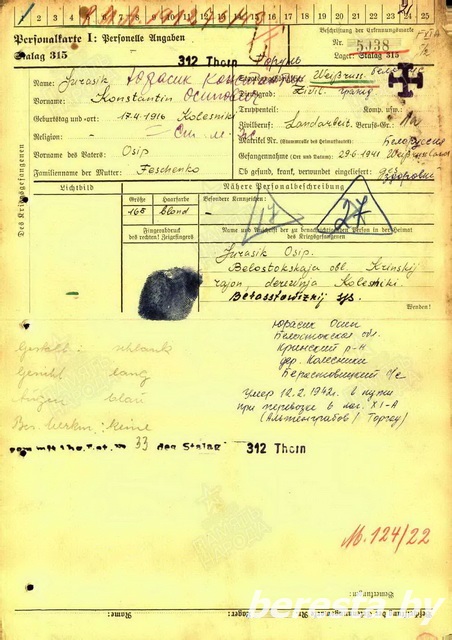 1 2 3 4 5 6 7 8 9 10 11 12 13 14 15 16 17 18 19 20 21 22 23 24 25
Personalkarte I: Personelle Angaben
Beschriftung der Erkennungsmarke
Stalag 315
Nr. 5038
312 Thorn Торунь
Lager: Stalag 315
Des Kriegsgefangenen
Name: Jurasik Юрасик Константин
Staatsangehörigkeit: Weißruss.
Vorname: Konstantin Осипович
Dienstgrad: Zivil.
Truppenteil: Komp. usw.:
Geburtstag und -ort: 17.4.1916 Kolesniki
Zivilberuf: Landarbeit. Berufs-Gr.:
Religion:
Matrikel Nr. (Stammrolle des Heimatstaates):
Белоруссия
Vorname des Vaters: Osip
Gefangennahme (Ort und Datum): 29.6.1941
Familienname der Mutter: Feschenko
Ob gesund, krank, verwundet eingeliefert:
Здоровый
Lichtbild
Nähere Personalbeschreibung
Größe Haarfarbe Besondere Kennzeichen:
168 blond –
17
27
Fingerabdruck des rechten! Zeigefingers
Name und Anschrift der zu benachrichtigenden Person in der Heimat des Kriegsgefangenen
Jurasik Osip.
Belostokskaja obl. Krinskij
rajon, derewnja Kolesniki.
Berastowizkij
Wenden!
Юрасик Осип
Белостокская обл.
Кринский р-н
дер. Колесники
Берестовицкий с/с
Gestalt: schlank
Gesicht: lang
Augen: blau
Bes. Merkm.: keine
Умер 12.2.1942г. в пути
при перевозке в лаг. XI-А
(Альтенграбов / Торгау)
33 des Stalag 312 Thorn
М.124/22
Bemerkungen:
Name:
beresta.by